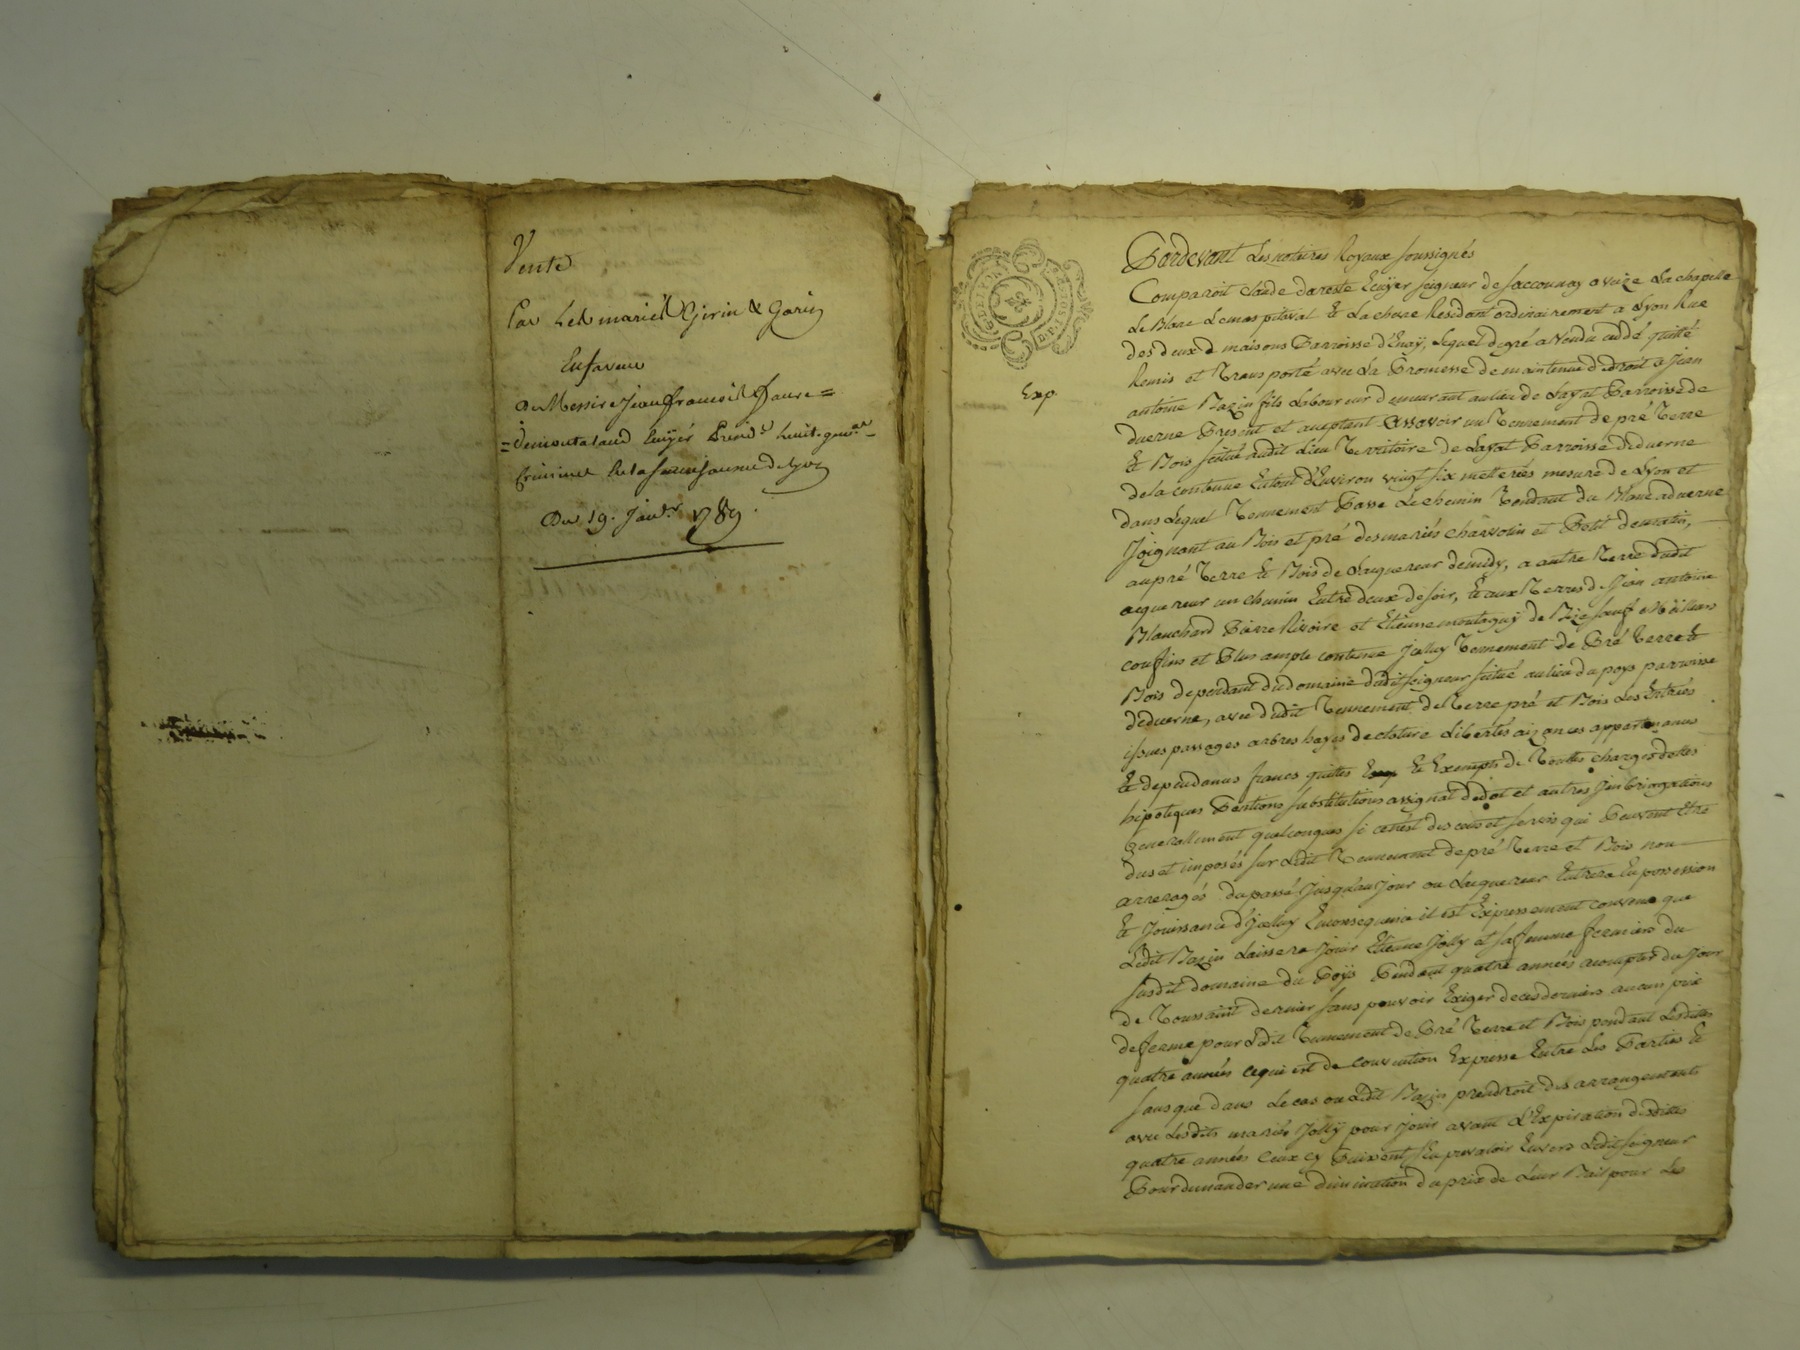 Vente
Par Les mariés Girin & Garin
En faveur
De Messire Jean françois faure =
= Demontaland Ecuyer Presid.t Lieut. gen.al
Criminel de la Senechaussée de Lyon
Du 19. Janv.r 1789.
GD ELYON
Exp
Pardevant Les notaires Royaux soussignés
Comparoit Claude dareste Ecuyer seigneur de saconnay aveize La chapelle
Le Blanc Lemas pitaval Et La chaux Residant ordinairement a Lyon Rue
des deux maisons Parroisse d'Enay, Lequel degré a Vendu cédé quitté
Remis et Transporté avec La Promesse de maintenue dedroit a Jean
antoine Bazin fils Laboureur demeurant au lieu de Layat Parroisse de
duerne Present et aceptant assavoir un Tennement de pré Terre
Et Bois scitué audit Lieu Territoire de Layat Parroisse deduerne
de la contenue Entout d'Environ vingt six metterées mesure de Lyon et
dans Lequel Tennement Passe Le chemin Tendant du Blanc a duerne
Joignant au Bois et pré des mariés charvolin et Petit dematin,
au pré Terre Et Bois de Lacquereur demidy, a autre Terre dudit
acquereur un chemin Entre deux de soir, Et aux Terres de Jean antoine
Blanchard Pierre Rivoire et Etienne montagny de Bize sauf meilleurs
confins et Plus ample contenue Icelluy Tennement de Pré Terre Et
Bois dependant du domaine dudit seigneur scitué au lieu du poys parroisse
deduerne, avec dudit Tennement de Terre pré et Bois Les Entrées
issues passages arbres hayes de cloture Libertés aizances appartenances
Et dependances francs quittes Et Exempts de Touttes charges dettes
hipoteques Pentions substitutions assignat dedot et autres Jmbrigations
generallement quelconques si cenest des cens et servis qui Peuvent Etre
dus et imposés sur Ledit Tennement de pré Terre et Bois non
arreragés du passé Jusqu'au Jour ou Lacquereur Entrera En possession
Et Jouissance d'Jcelluy Enconsequence il est Expressement convenu que
Ledit Bazin Laissera Jouir Etienne Jolly et sa femme fermiers du
susdit domaine du Poÿs Pendant quatre années a compter du Jour
de Toussaint dernier sans pouvoir Exiger de ces derniers aucun prix
de ferme pour Ledit Tennement de Pré Terre et Bois pendant Lesdittes
quatre années ce qui est de convention Expresse Entre Les Parties Et
sans que dans Le cas ou Ledit Bazin prendroit des arrangements
avec Lesdits mariés Jolly pour Jouir avant L'Expiration desdittes
quatre années Ceux cy Puissent s'En prevaloir Envers Ledit seigneur
Pour demander une diminution du prix de Leur Bail pour Les